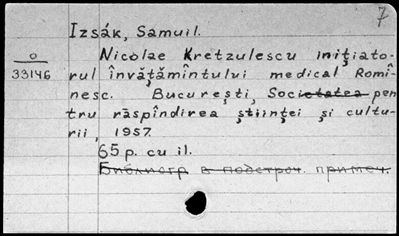 7
Izsák, Samuil.
O
33146
Nicolae Kretzulescu iniţiato-
rul învăţămîntului medical Romî-
nesc. Bucureşti, Societatea pen
tru răspîndirea ştiinţei şi cultu-
rii, 1957.
65 p. cu il.
Библиогр в подстроч. примеч.